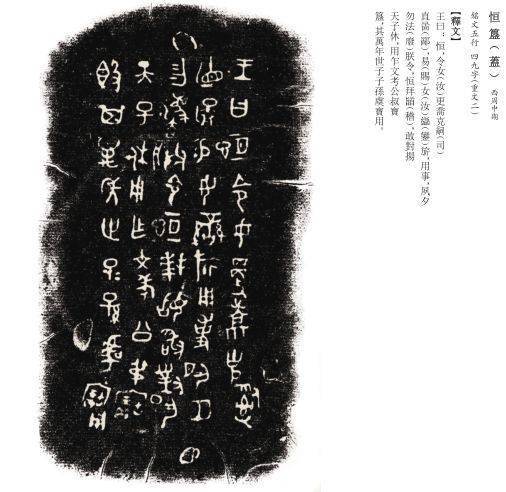 恒簋（蓋） 西周中期
銘文五行 四九字（重文二）
【釋文】
王曰：恒，令女（汝）更喬克嗣（司）
直啚（鄙），易（賜）女（汝）䜌（鑾）旂，用事，夙夕
勿法（廢）朕令，恒拜䭫（稽），敢對揚
天子休，用乍文考公叔寶
簋，其萬年世子子孫虞寶用。